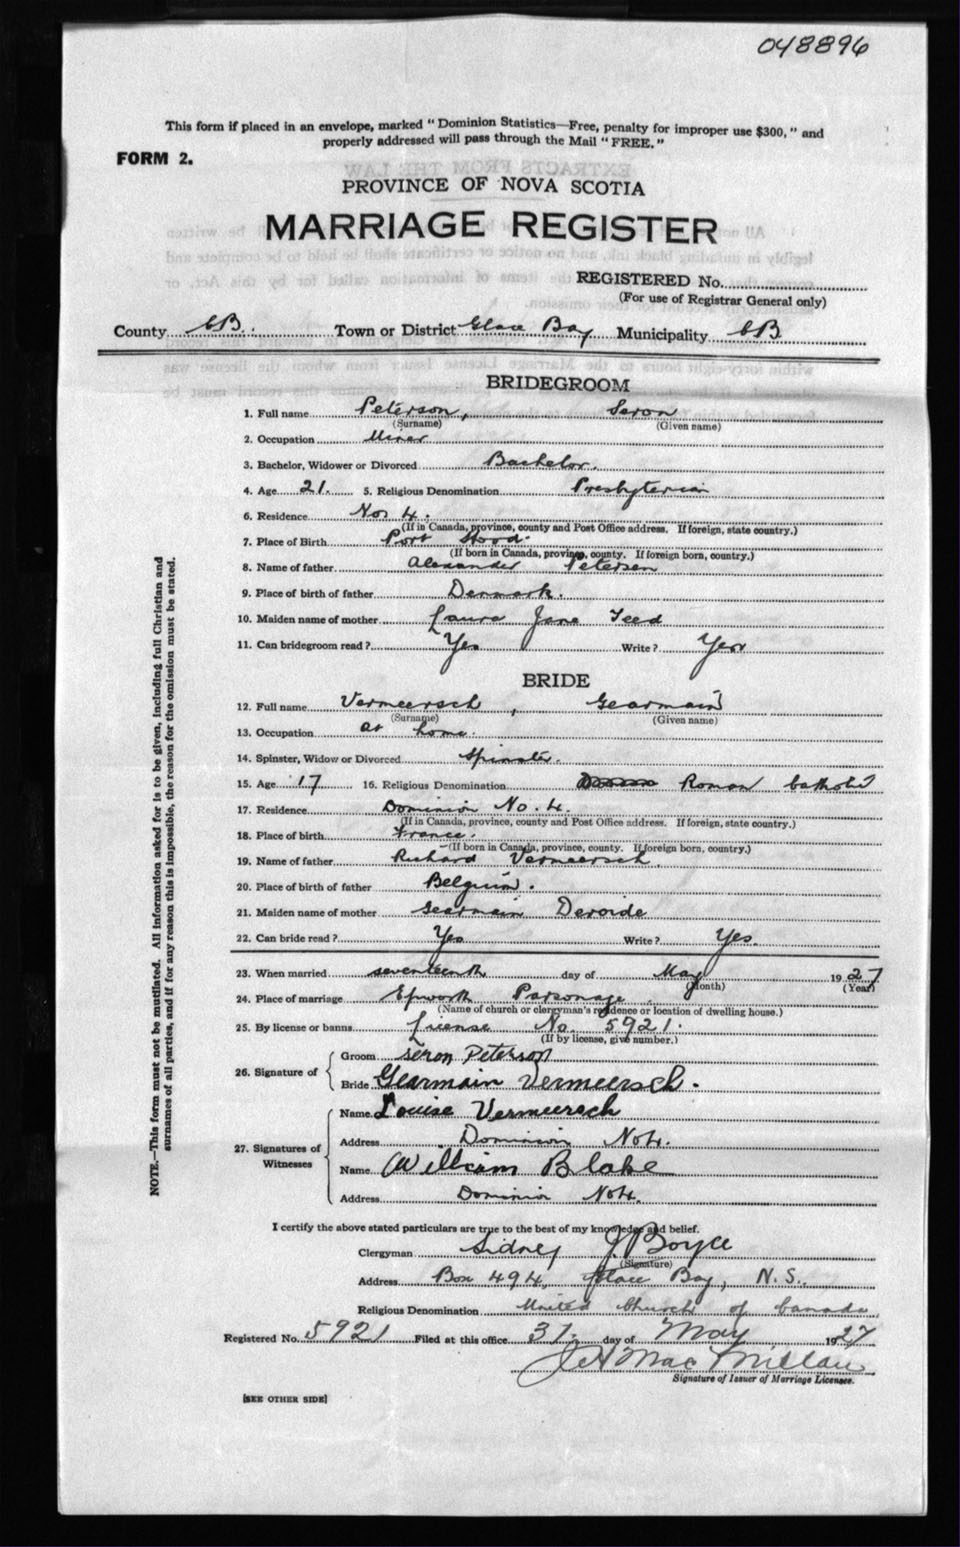 048896
This form if placed in an envelope, marked "Dominion Statistics—Free, penalty for improper use $300," and
properly addressed will pass through the Mail "FREE."
FORM 2.
PROVINCE OF NOVA SCOTIA
MARRIAGE REGISTER
REGISTERED No.
(For use of Registrar General only)
County C.B. Town or District Glace Bay Municipality C.B.
BRIDEGROOM
1. Full name Peterson, Seron
(Surname) (Given name)
2. Occupation Miner
3. Bachelor, Widower or Divorced Bachelor.
4. Age 21. 5. Religious Denomination Presbyterian
6. Residence No. 4.
(If in Canada, province, county and Post Office address. If foreign, state country.)
7. Place of Birth Port Hood.
(If born in Canada, province, county. If foreign born, country.)
8. Name of father Alexander Petersen
9. Place of birth of father Denmark.
10. Maiden name of mother Laura Jane Teed
11. Can bridegroom read? Yes Write? Yes
BRIDE
12. Full name Vermeersch, Gearmain
(Surname) (Given name)
13. Occupation at home.
14. Spinster, Widow or Divorced Spinster.
15. Age 17 16. Religious Denomination Roman Catholic
17. Residence Dominion No. 4.
(If in Canada, province, county and Post Office address. If foreign, state country.)
18. Place of birth France.
(If born in Canada, province, county. If foreign born, country.)
19. Name of father Richard Vermeersch
20. Place of birth of father Belgium.
21. Maiden name of mother Gearmain Deroide
22. Can bride read? Yes Write? Yes.
23. When married seventeenth day of May 1927
(Month) (Year)
24. Place of marriage Epworth Parsonage
(Name of church or clergyman's residence or location of dwelling house.)
25. By license or banns License No. 5921.
(If by license, give number.)
26. Signature of Groom Seron Peterson
Bride Gearmain Vermeersch.
27. Signatures of Witnesses Name Louise Vermeersch
Address Dominion No 4.
Name William Blake
Address Dominion No 4.
I certify the above stated particulars are true to the best of my knowledge and belief.
Clergyman Sidney J Boyce
(Signature)
Address Box 494, Glace Bay, N.S.
Religious Denomination United Church of Canada
Registered No. 5921 Filed at this office 31 day of May 1927
MacMillan
Signature of Issuer of Marriage Licenses.
[SEE OTHER SIDE]
NOTE.—This form must not be mutilated. All information asked for is to be given, including full Christian and
surnames of all parties, and if for any reason this is impossible, the reason for the omission must be stated.